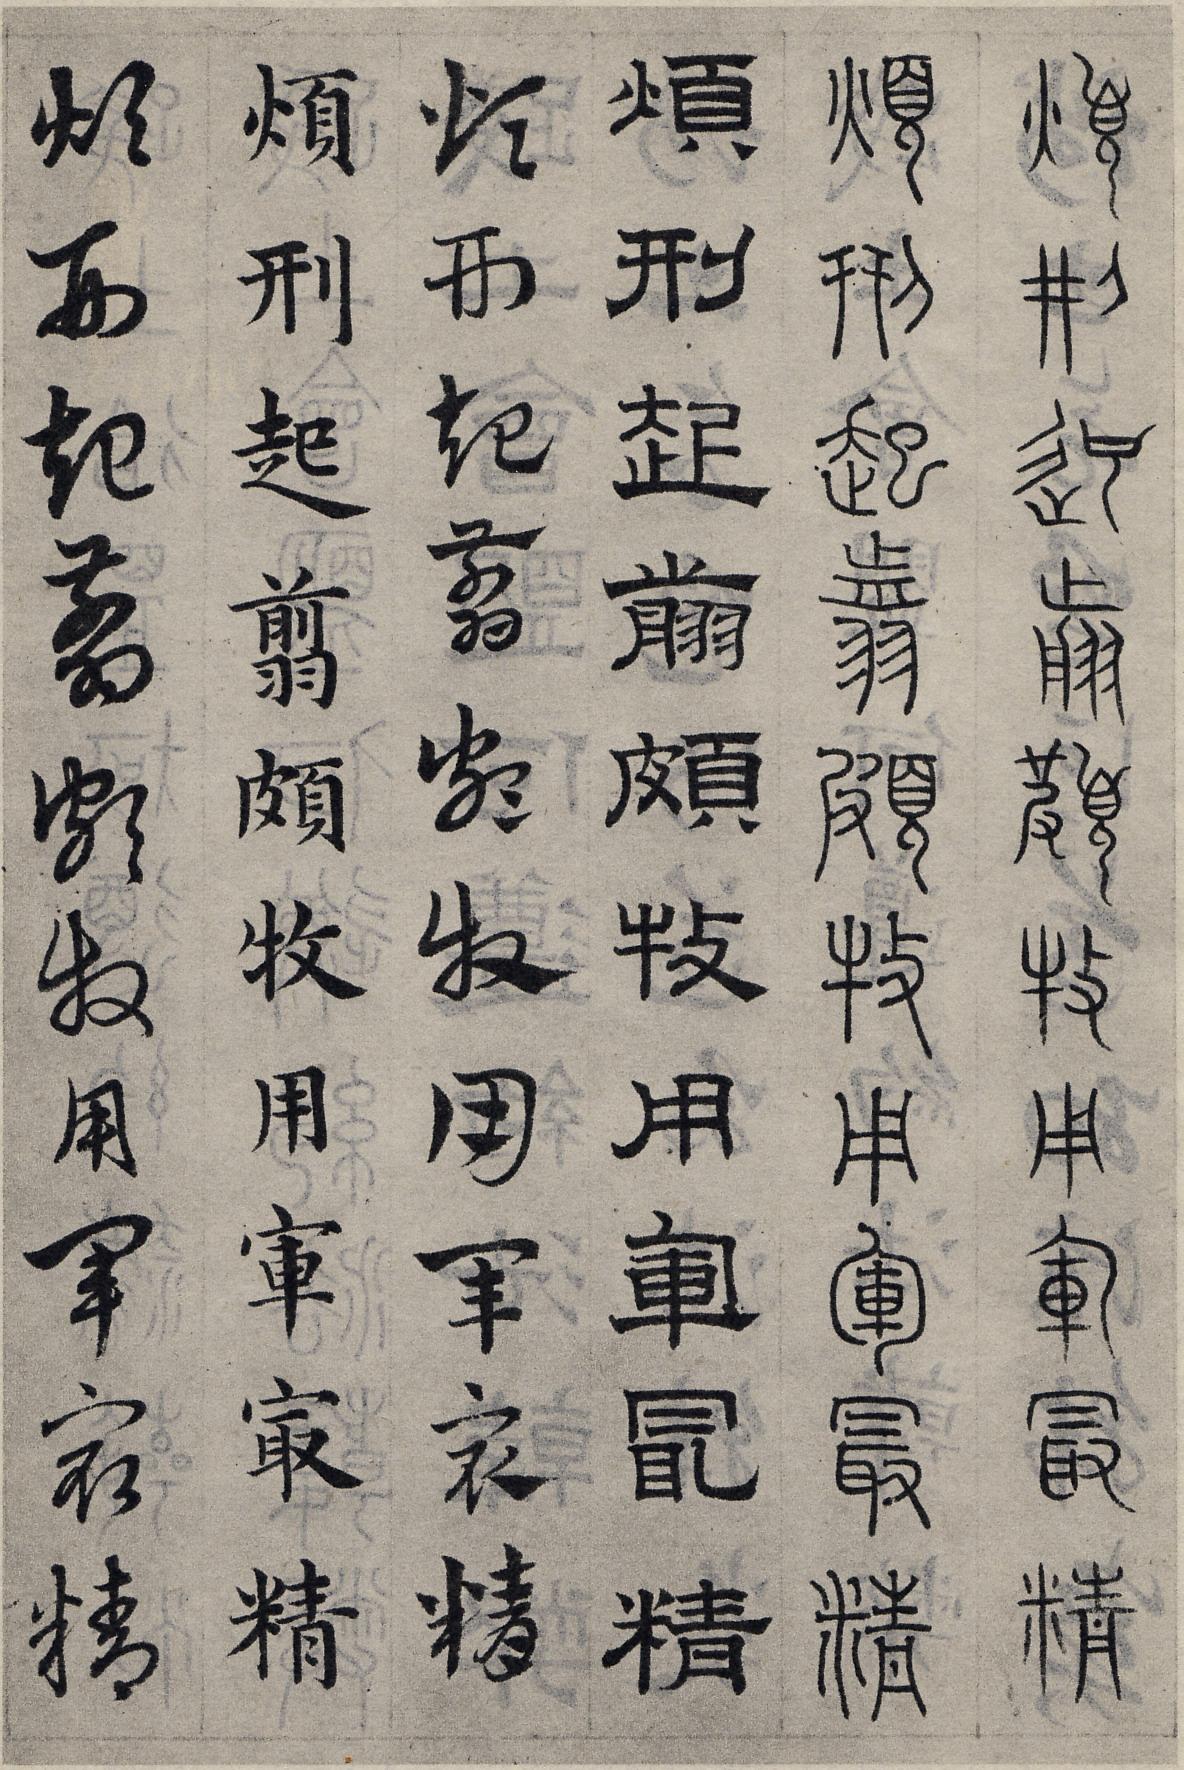 煩刑起翦頗牧用軍㝡精
煩刑起翦頗牧用軍㝡精
煩刑起翦頗牧用軍㝡精
煩刑起翦頗牧用軍㝡精
煩刑起翦頗牧用軍㝡精
煩刑起翦頗牧用軍㝡精